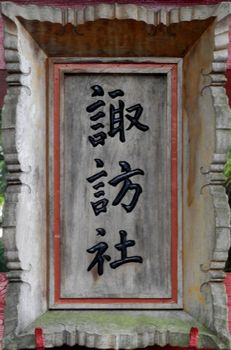 諏訪社